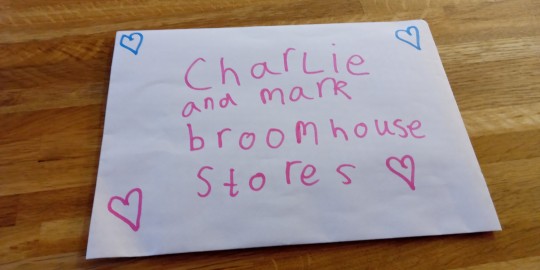 CharLie
and mark
broomhouse
Stores